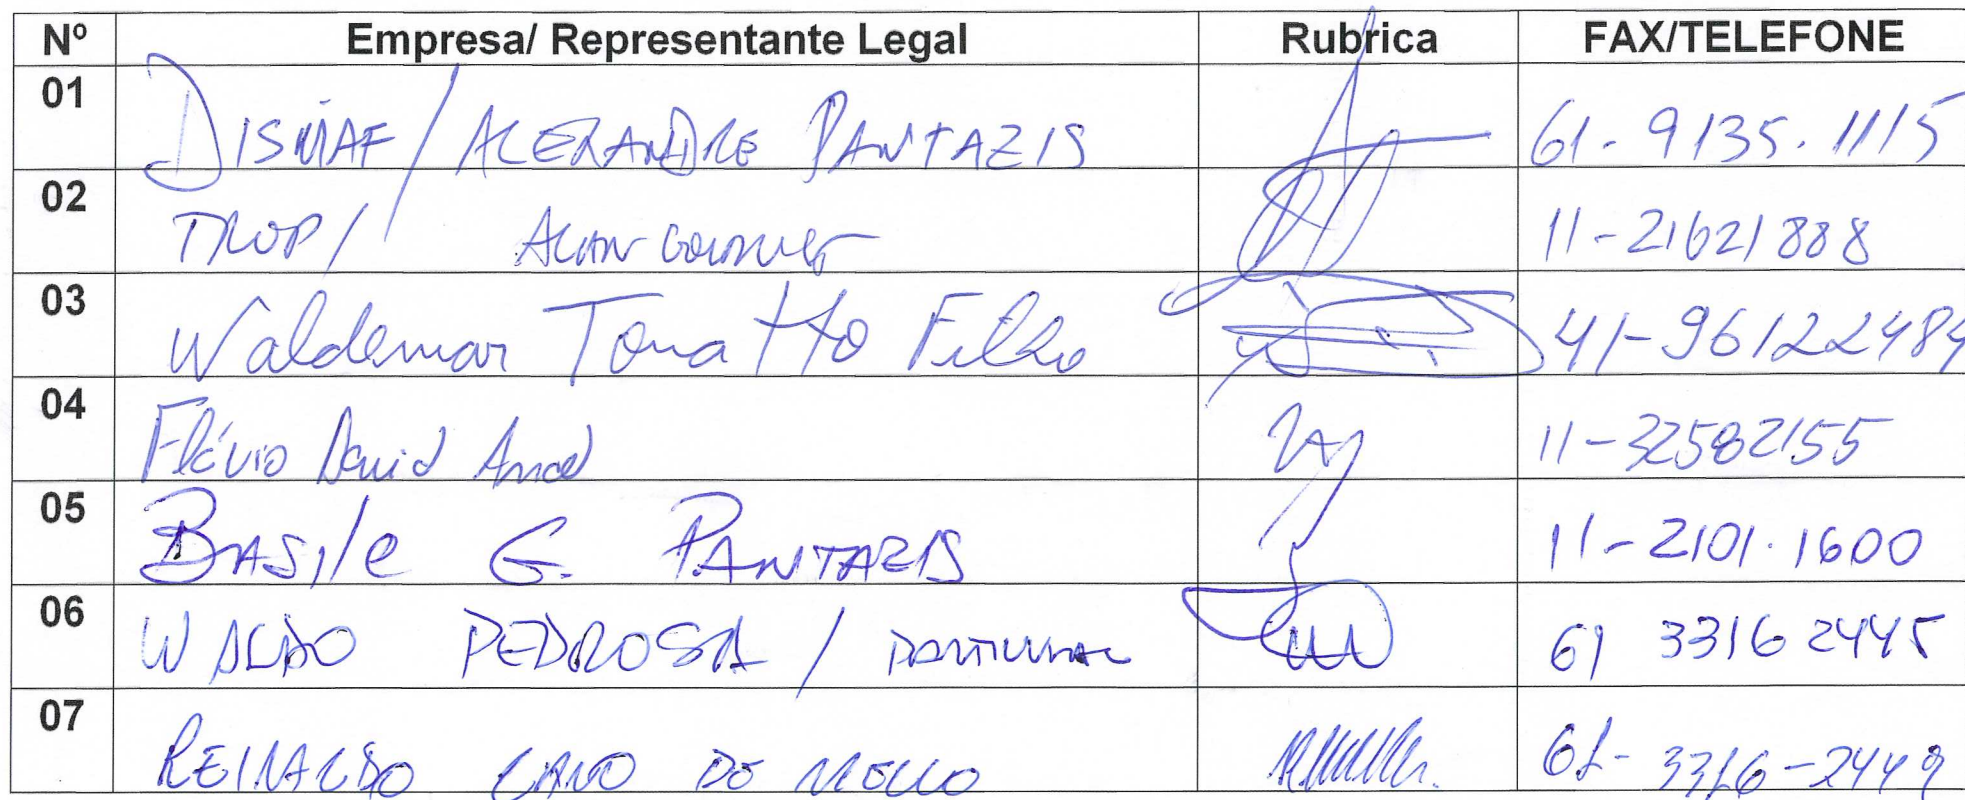 Nº Empresa/ Representante Legal Rubrica FAX/TELEFONE
01 DISMAF / ALEXANDRE PANTAZIS 61-9135.1115
02 TROP/ ALAN 11-21621888
03 Waldemar Tonatto Filho 41-96122484
04 Flávio David 11-32582155
05 BASILE G. PANTAZIS 11-2101.1600
06 WALDO PEDROSA / 61 3316 2445
07 REINALDO CANO DE MELLO 61-3316-2449